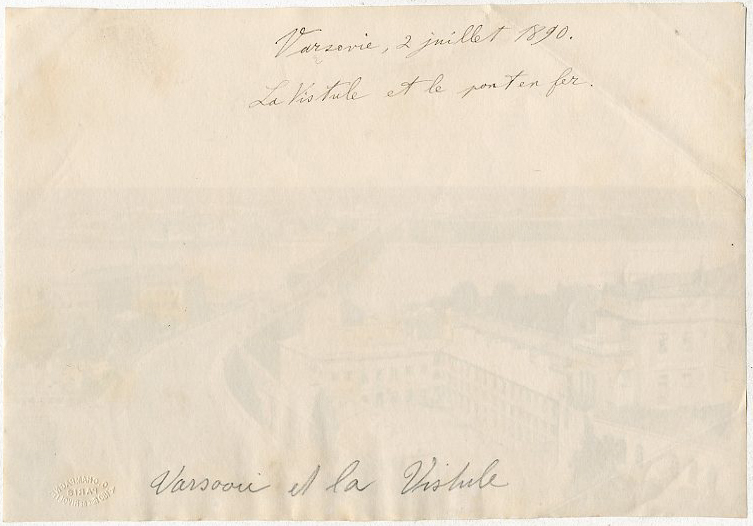 Varsovie, 2 juillet 1890.
La Vistule et le pont en fer.
Varsovie et la Vistule
PARIS